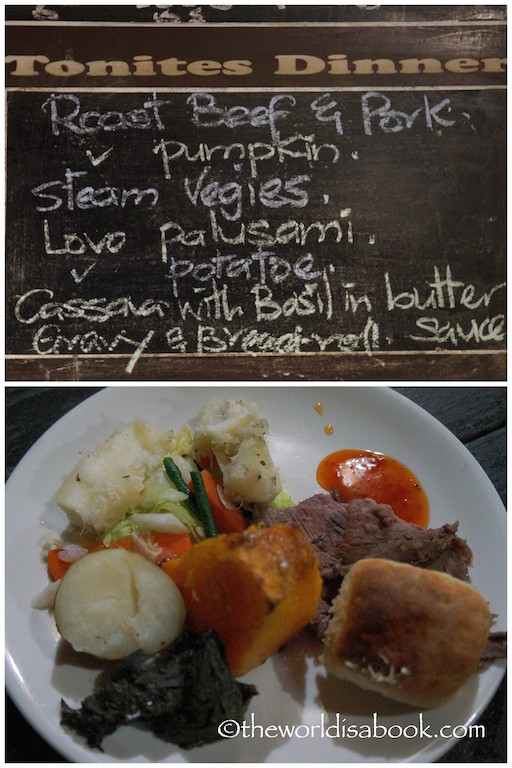 Tonites Dinner
Roast Beef & Pork.
✓ pumpkin.
Steam Vegies.
Lovo palusami.
✓ potatoe.
Cassava with Basil in butter
Gravy & Bread-roll. Sauce
©theworldisabook.com